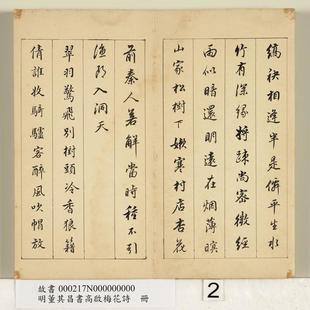 縞袂相逢半是僊平生水
竹有深緣將疎尚密微經
雨似暗還明遠在烟薄暝
山家松樹下嫩寒村店杏花
前秦人若解當時種不引
漁郎入洞天
翠羽驚飛別樹頭冷香狼籍
倩誰收騎驢客醉風吹帽放
故書 000217N000000000
明董其昌書高啟梅花詩 冊
2